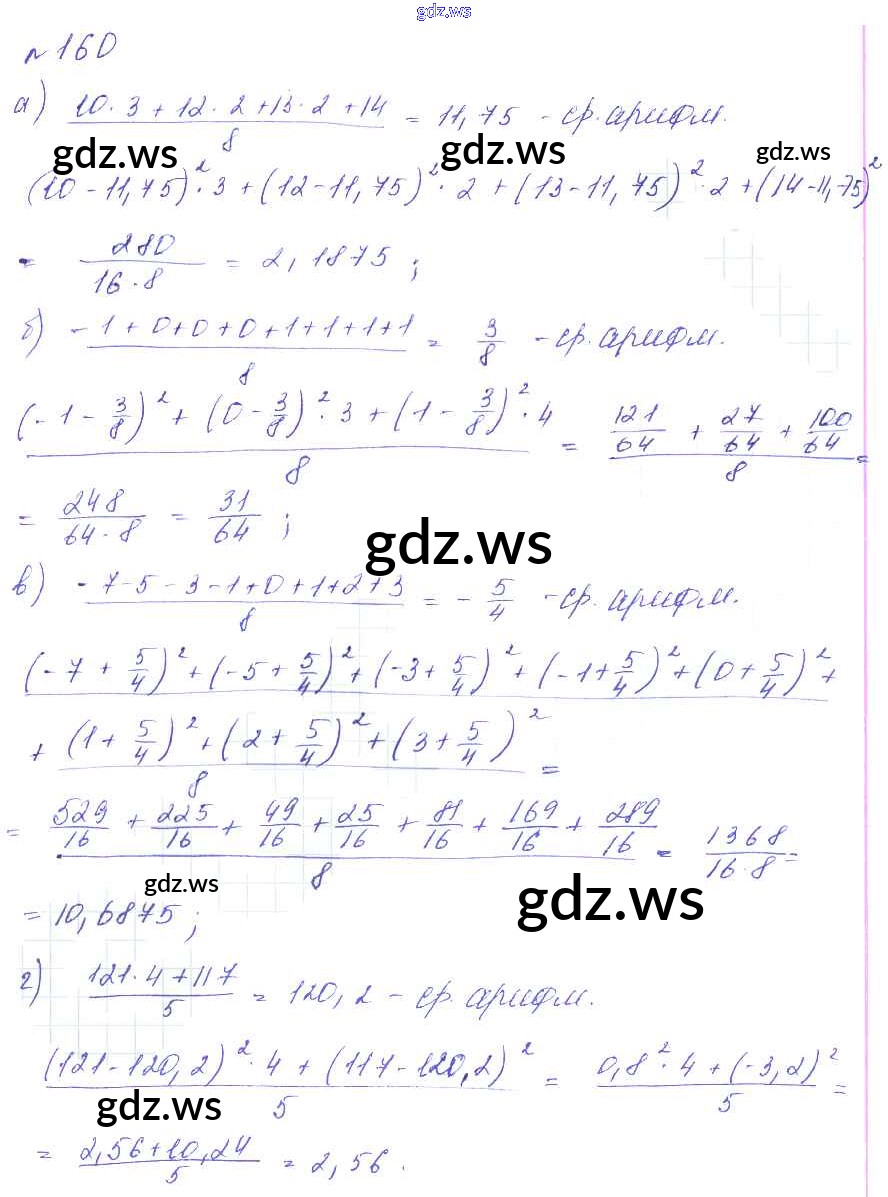 gdz.ws
№160
а) (10·3 + 12·2 + 13·2 + 14)/8 = 11,75 - ср. арифм.
gdz.ws gdz.ws gdz.ws
(10 - 11,75)²·3 + (12 - 11,75)²·2 + (13 - 11,75)²·2 + (14 - 11,75)²
= 280/(16·8) = 2,1875 ;
б) (-1+0+0+0+1+1+1+1)/8 = 3/8 - ср. арифм.
((-1 - 3/8)² + (0 - 3/8)²·3 + (1 - 3/8)²·4)/8 = (121/64 + 27/64 + 100/64)/8 =
= 248/(64·8) = 31/64 ;
gdz.ws
в) (-7-5-3-1+0+1+2+3)/8 = -5/4 - ср. арифм.
(-7 + 5/4)² + (-5 + 5/4)² + (-3 + 5/4)² + (-1 + 5/4)² + (0 + 5/4)² +
+ (1 + 5/4)² + (2 + 5/4)² + (3 + 5/4)² / 8 =
= (529/16 + 225/16 + 49/16 + 25/16 + 81/16 + 169/16 + 289/16)/8 = 1368/(16·8) =
gdz.ws gdz.ws
= 10,6875 ;
г) (121·4 + 117)/5 = 120,2 - ср. арифм.
((121 - 120,2)²·4 + (117 - 120,2)²)/5 = (0,8²·4 + (-3,2)²)/5 =
gdz.ws
= (2,56 + 10,24)/5 = 2,56 .